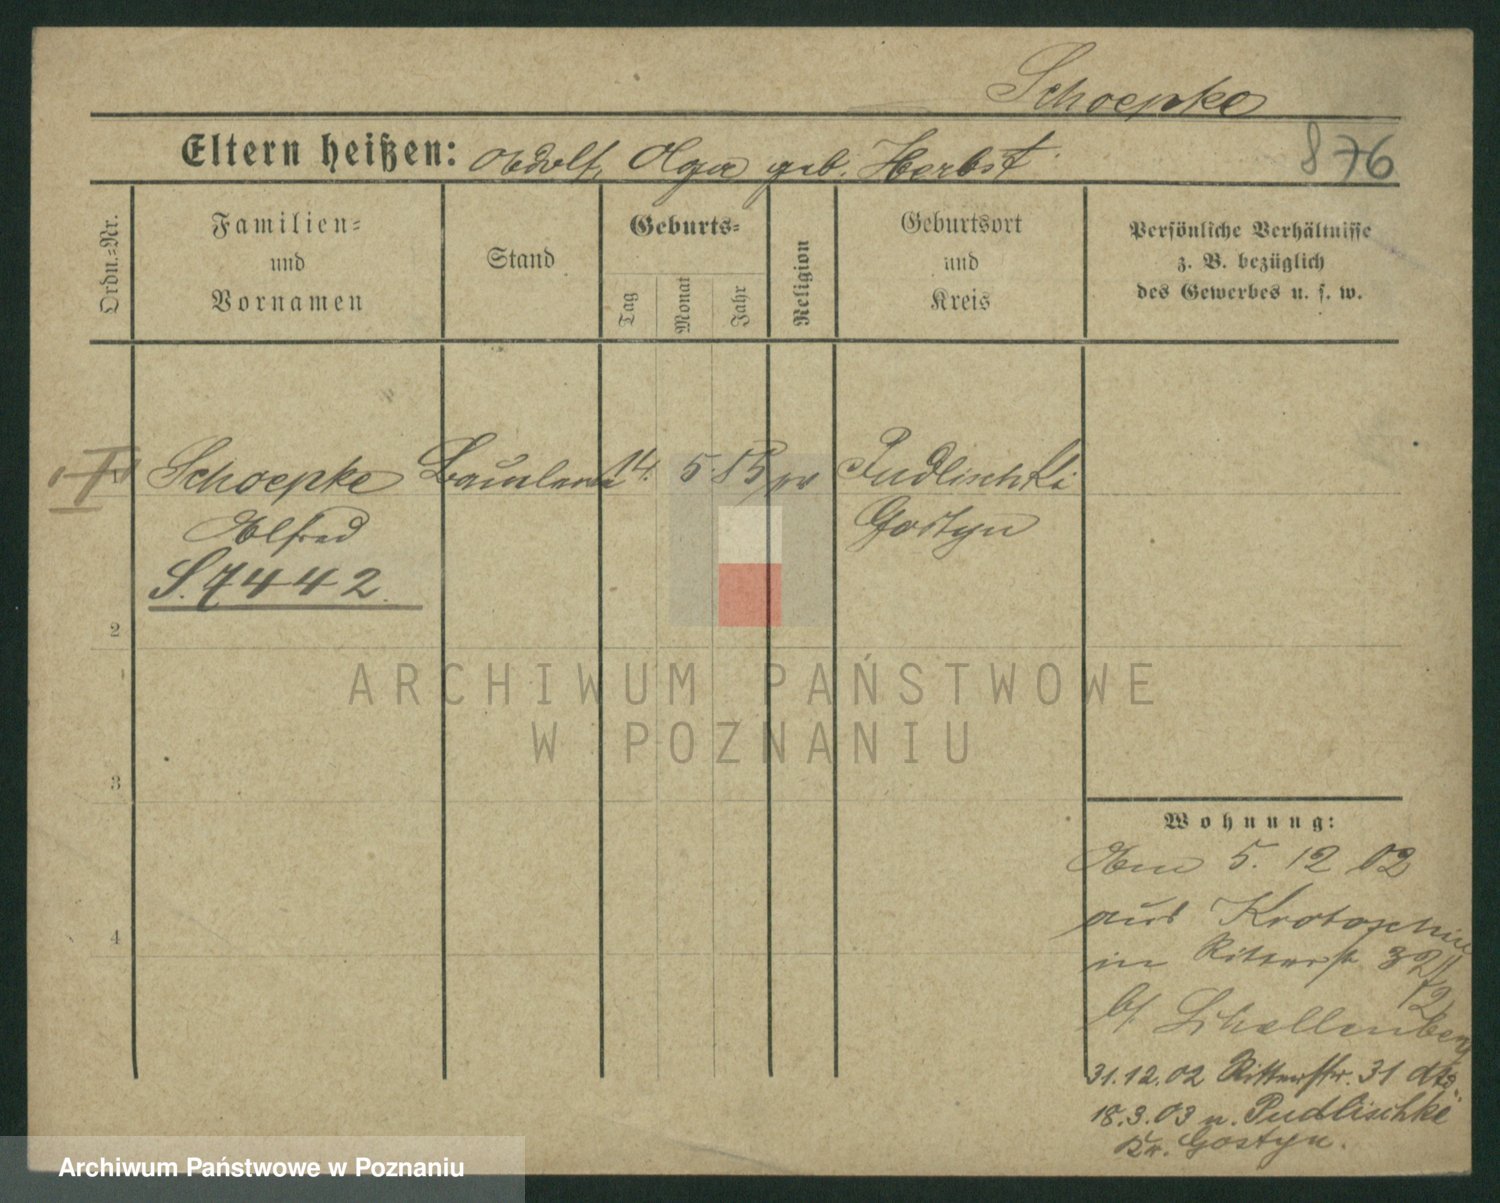 Schoepke
Eltern heißen: Adolf, Olga geb. Herbst
876
Ordn.-Nr.
Familien-
und
Vornamen
Stand
Geburts-
Tag
Monat
Jahr
Religion
Geburtsort
und
Kreis
Persönliche Verhältnisse
z. B. bezüglich
des Gewerbes u. s. w.
Schoepke 14. 5. 85 Pudlischki
Alfred Gostyn
S. 7442.
2
3
4
Wohnung:
Am 5. 12 02
aus Krotoschin
in Ritterst 32
b/ Schallenberg
31.12.02 Ritterstr. 31
18.3.03 n. Pudlischki
Kr. Gostyn.
ARCHIWUM PAŃSTWOWE
W POZNANIU
Archiwum Państwowe w Poznaniu